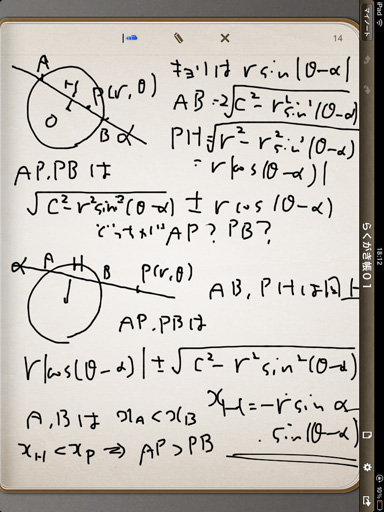 14
A
H
P(r,θ)
O
B
α
キョリは r sin|θ-α|
AB=2√c²-r²sin²(θ-α)
PH=√r²-r²sin²(θ-α)
=r|cos(θ-α)|
AP,PBは
√c²-r²sin²(θ-α) ± r cos(θ-α)
どっちがAP?PB?
α
A
H
B
P(r,θ)
AB,PHは同上
AP,PBは
r|cos(θ-α)|±√c²-r²sin²(θ-α)
A,Bは xA<xB
xH=-r sin α
・sin(θ-α)
xH<xP ⇒ AP>PB
iPad
マイノート
らくがき帳01
18:12
10%